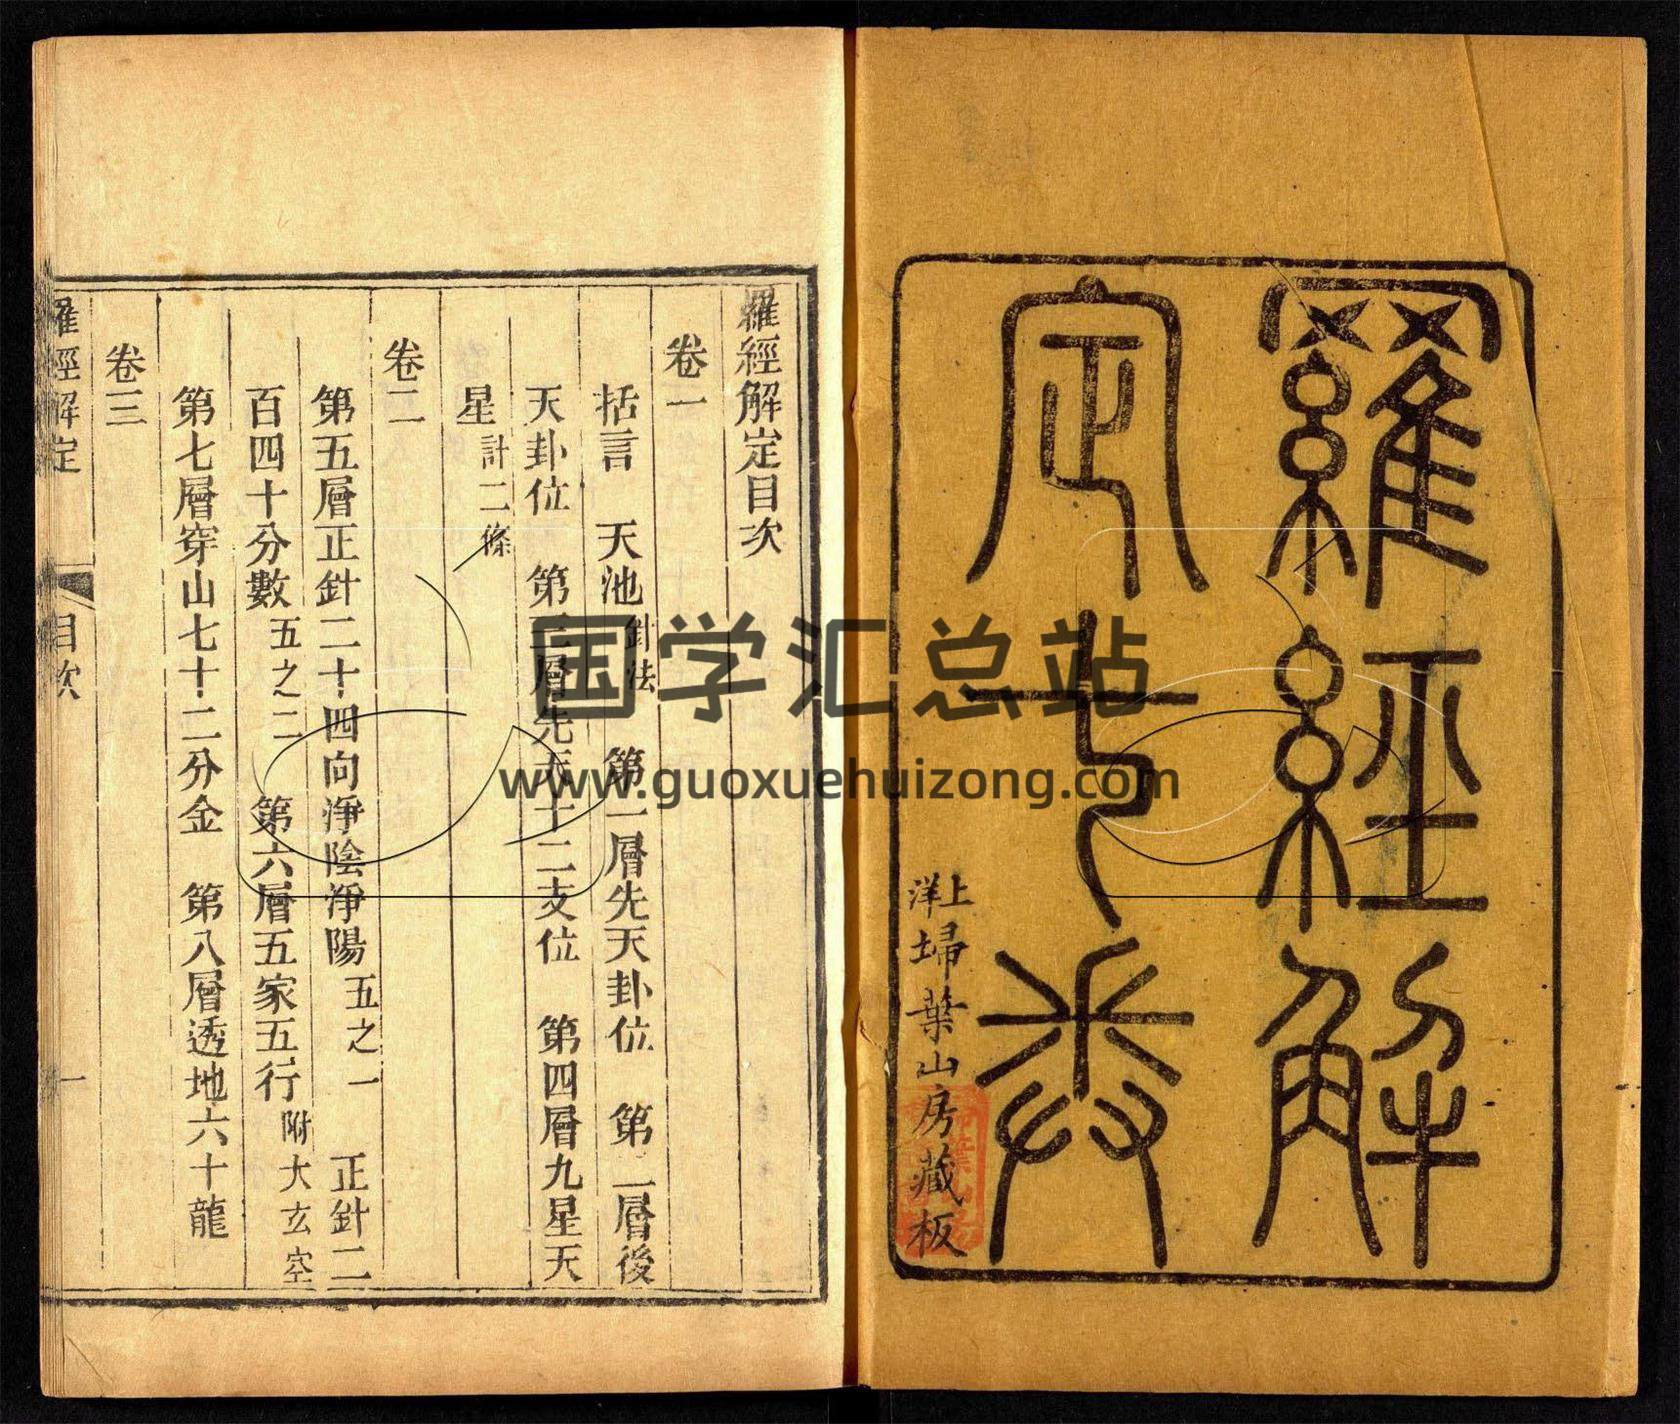 羅經解
定七卷
上洋埽葉山房藏板
羅經解定目次
卷一
括言　天池針法　第一層先天卦位　第二層後
天卦位　第三層先天十二支位　第四層九星天
星計二條
卷二
第五層正針二十四向淨陰淨陽五之一　正針二
百四十分數五之二　第六層五家五行附大玄空
第七層穿山七十二分金　第八層透地六十龍
卷三
羅經解定　目次　一
国学汇总站
www.guoxuehuizong.com